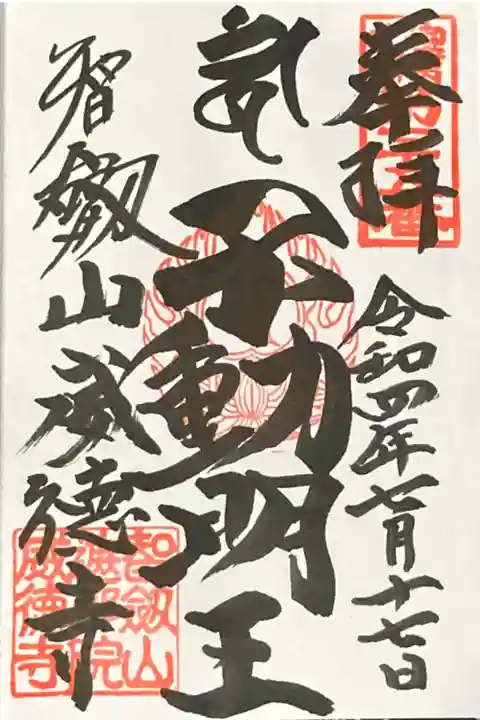 奉拝
令和四年七月十七日
不動明王
智劔山威徳寺
智劔山
遍照院
威徳寺